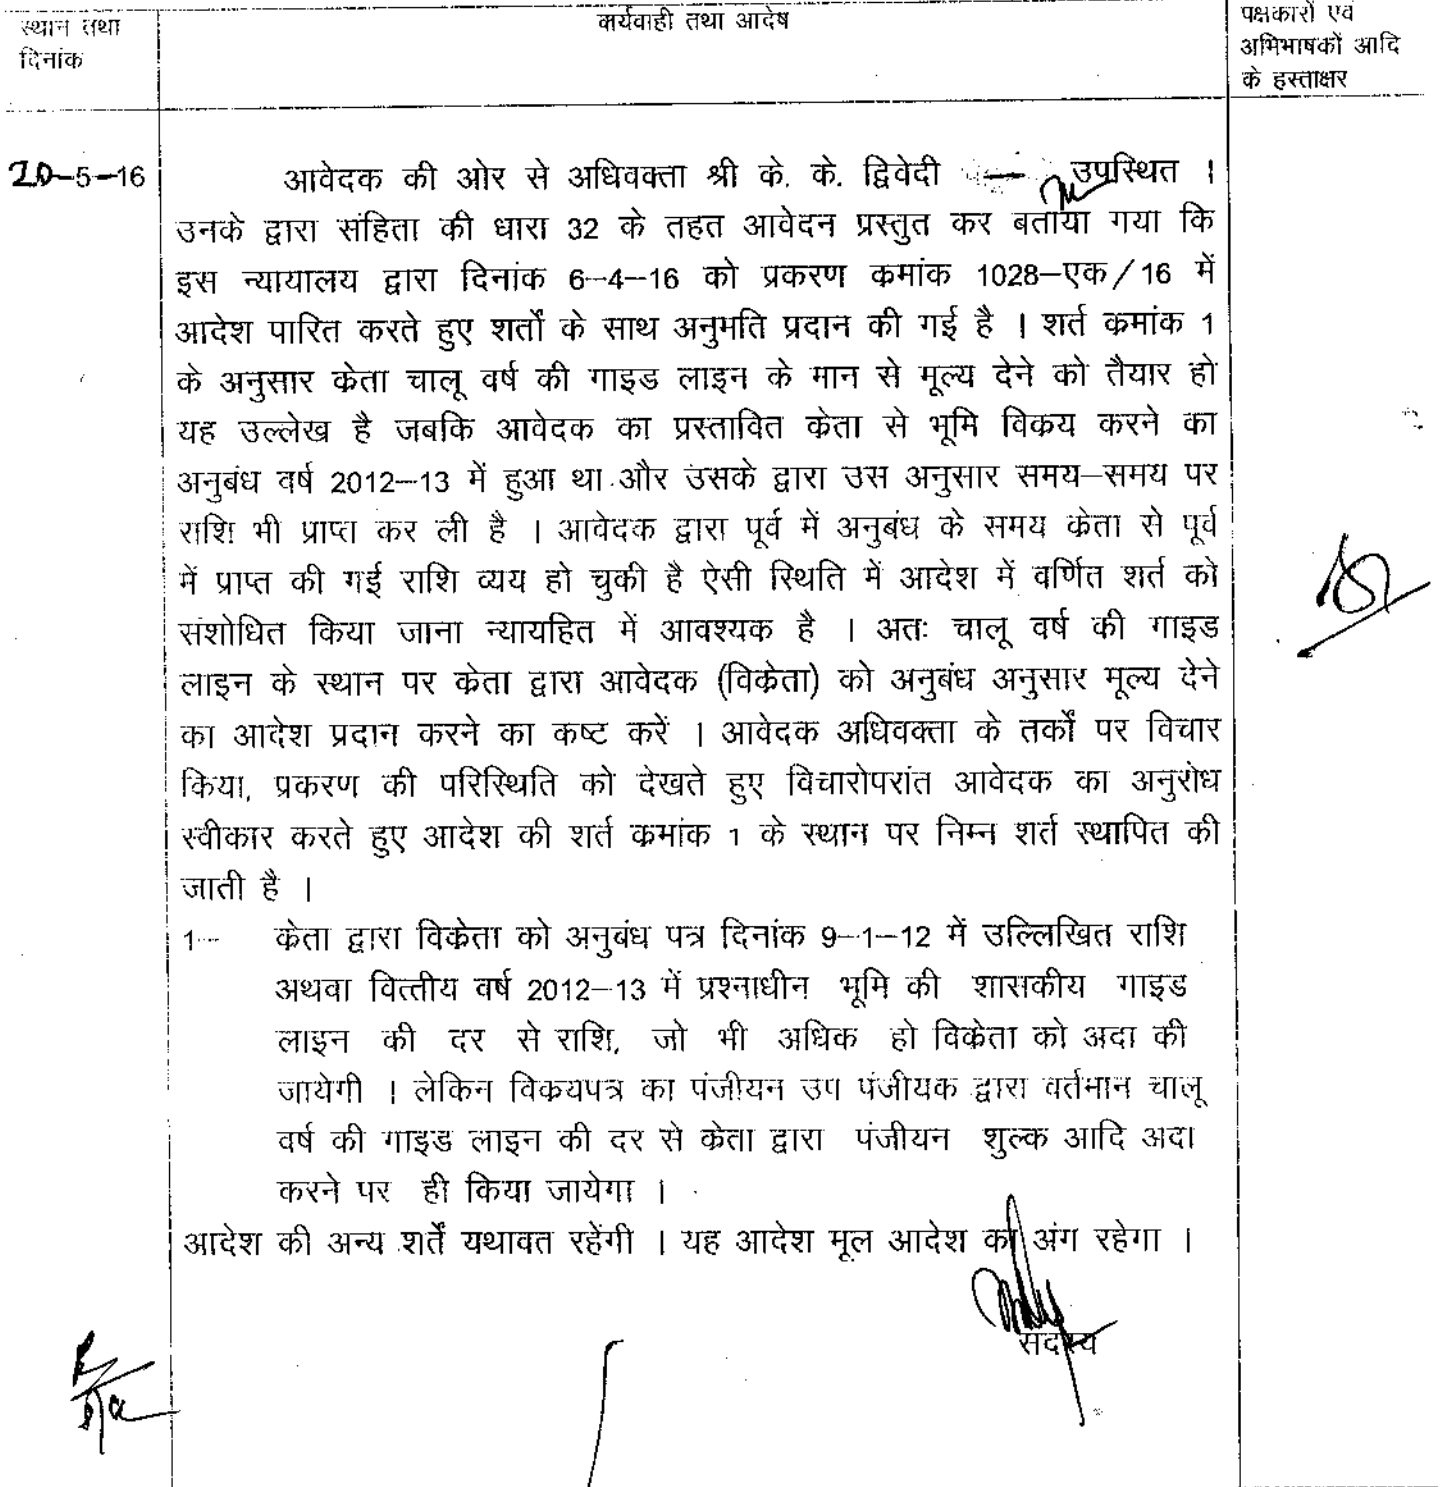 स्थान तथा
दिनांक
कार्यवाही तथा आदेष
पक्षकारों एवं
अभिभाषकों आदि
के हस्ताक्षर
20-5-16
आवेदक की ओर से अधिवक्ता श्री के. के. द्विवेदी उपस्थित ।
उनके द्वारा संहिता की धारा 32 के तहत आवेदन प्रस्तुत कर बताया गया कि
इस न्यायालय द्वारा दिनांक 6-4-16 को प्रकरण कमांक 1028-एक/16 में
आदेश पारित करते हुए शर्तों के साथ अनुमति प्रदान की गई है । शर्त कमांक 1
के अनुसार केता चालू वर्ष की गाइड लाइन के मान से मूल्य देने को तैयार हो
यह उल्लेख है जबकि आवेदक का प्रस्तावित केता से भूमि विकय करने का
अनुबंध वर्ष 2012-13 में हुआ था और उसके द्वारा उस अनुसार समय-समय पर
राशि भी प्राप्त कर ली है । आवेदक द्वारा पूर्व में अनुबंध के समय केता से पूर्व
में प्राप्त की गई राशि व्यय हो चुकी है ऐसी स्थिति में आदेश में वर्णित शर्त को
संशोधित किया जाना न्यायहित में आवश्यक है । अतः चालू वर्ष की गाइड
लाइन के स्थान पर केता द्वारा आवेदक (विकेता) को अनुबंध अनुसार मूल्य देने
का आदेश प्रदान करने का कष्ट करें । आवेदक अधिवक्ता के तर्कों पर विचार
किया, प्रकरण की परिस्थिति को देखते हुए विचारोपरांत आवेदक का अनुरोध
स्वीकार करते हुए आदेश की शर्त कमांक 1 के स्थान पर निम्न शर्त स्थापित की
जाती है ।
1- केता द्वारा विकेता को अनुबंध पत्र दिनांक 9-1-12 में उल्लिखित राशि
अथवा वित्तीय वर्ष 2012-13 में प्रश्नाधीन भूमि की शासकीय गाइड
लाइन की दर से राशि, जो भी अधिक हो विकेता को अदा की
जायेगी । लेकिन विकयपत्र का पंजीयन उप पंजीयक द्वारा वर्तमान चालू
वर्ष की गाइड लाइन की दर से केता द्वारा पंजीयन शुल्क आदि अदा
करने पर ही किया जायेगा ।
आदेश की अन्य शर्तें यथावत रहेंगी । यह आदेश मूल आदेश का अंग रहेगा ।
सदस्य